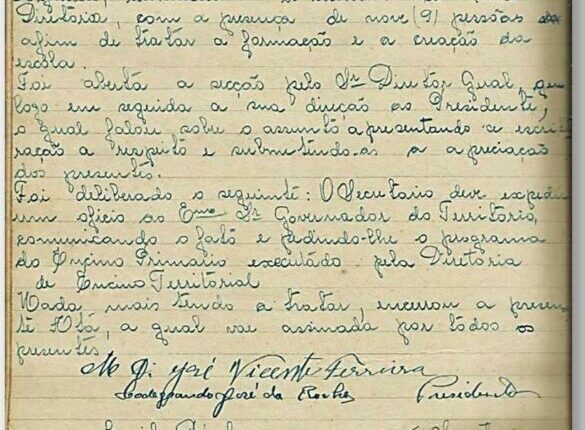 Diretoria, com a presença de nove (9) pessôas
afim de tratar a formação e a criação da
escola.
Foi aberta a secção pelo Snr Diretôr Gual, que
logo em seguida a sua direção ao Presidente,
o qual falou sobre o assunto apresentando-se escritu
ração a respeito e submetendo-as a apreciação
dos presentes.
Foi deliberado o seguinte: O Secretario deve expedir
um oficio ao Exmo Snr Governador do Território,
comunicando o fato e pedindo-lhe o programa
do Encino Primario executado pela Diretoria
de Encino Territorial
Nada mais tendo a tratar, encerrou a presen-
te Ata, a qual vae assinada por todos os
presentes
José Vicente Ferreira
José da Rocha Presidente